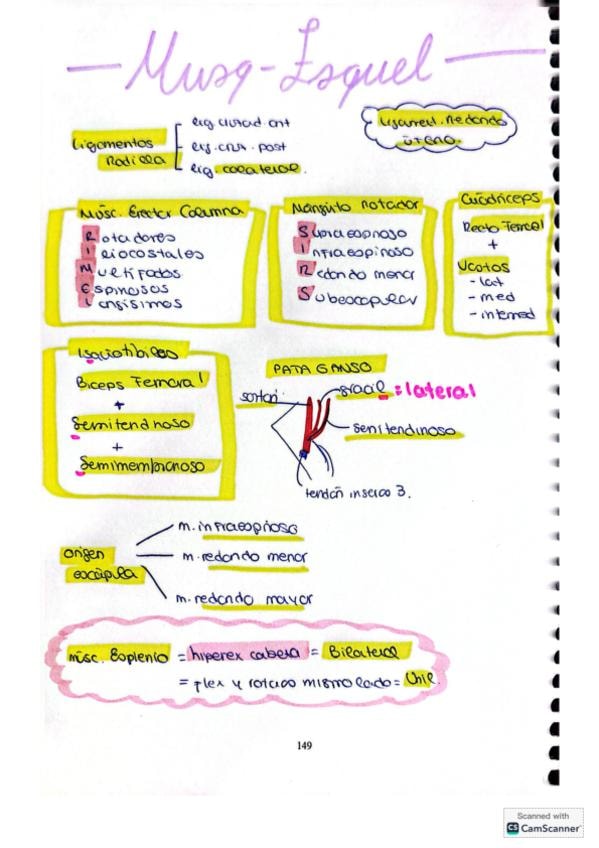 Musq-Esquel
Ligamentos Rodilla
lig. cruzad. ant
lig. cruz. post
lig. colateral.
redondo
útero.
Músc. Erector Columna
Rotadores
Iliocostales
Multífidos
Espinosos
Longísimos
Manguito rotador
Supraespinoso
Infraespinoso
Redondo menor
Subescapular
Cuádriceps
Recto Femoral
+
Vastos
- lat
- med
- intermed
Isquiotibiales
Biceps Femoral
+
Semitendinoso
+
Semimembranoso
PATA GANSO
sartori
gracil = lateral
semitendinoso
tendón inserta 3.
origen escápula
m. infraespinoso
m. redondo menor
m. redondo mayor
músc. Esplenio = hiperex cabeza = Bilateral
= flex y rotacio mismo lado =
149
Scanned with
CS CamScanner